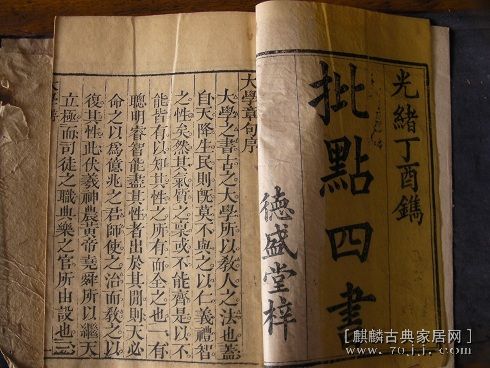 光緒丁酉鐫
批點四書
德盛堂梓
大學章句序
大學之書古之大學所以敎人之法也蓋
自天降生民則旣莫不與之以仁義禮智
之性矣然其氣質之稟或不能齊是以不
能皆有以知其性之所有而全之也一有
聰明睿智能盡其性者出於其閒則天必
命之以爲億兆之君師使之治而敎之以
復其性此伏羲神農黃帝堯舜所以繼天
立極而司徒之職典樂之官所由設也三
[麒麟古典家居网]
www.70jj.com